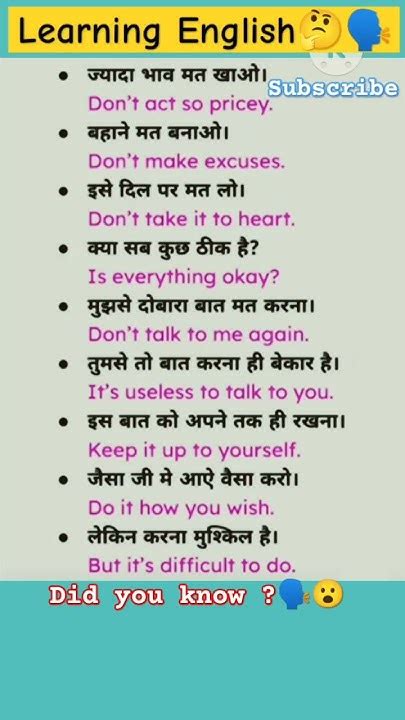 Learning English🤔🗣️
Subscribe
• ज्यादा भाव मत खाओ।
Don't act so pricey.
• बहाने मत बनाओ।
Don't make excuses.
• इसे दिल पर मत लो।
Don't take it to heart.
• क्या सब कुछ ठीक है?
Is everything okay?
• मुझसे दोबारा बात मत करना।
Don't talk to me again.
• तुमसे तो बात करना ही बेकार है।
It's useless to talk to you.
• इस बात को अपने तक ही रखना।
Keep it up to yourself.
• जैसा जी मे आऐ वैसा करो।
Do it how you wish.
• लेकिन करना मुश्किल है।
But it's difficult to do.
Did you know ?🗣️😮